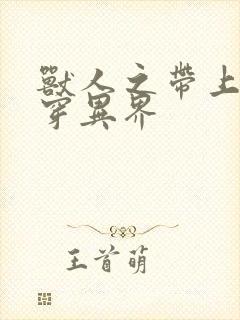 獸人之帶上
穿異界
王首萌